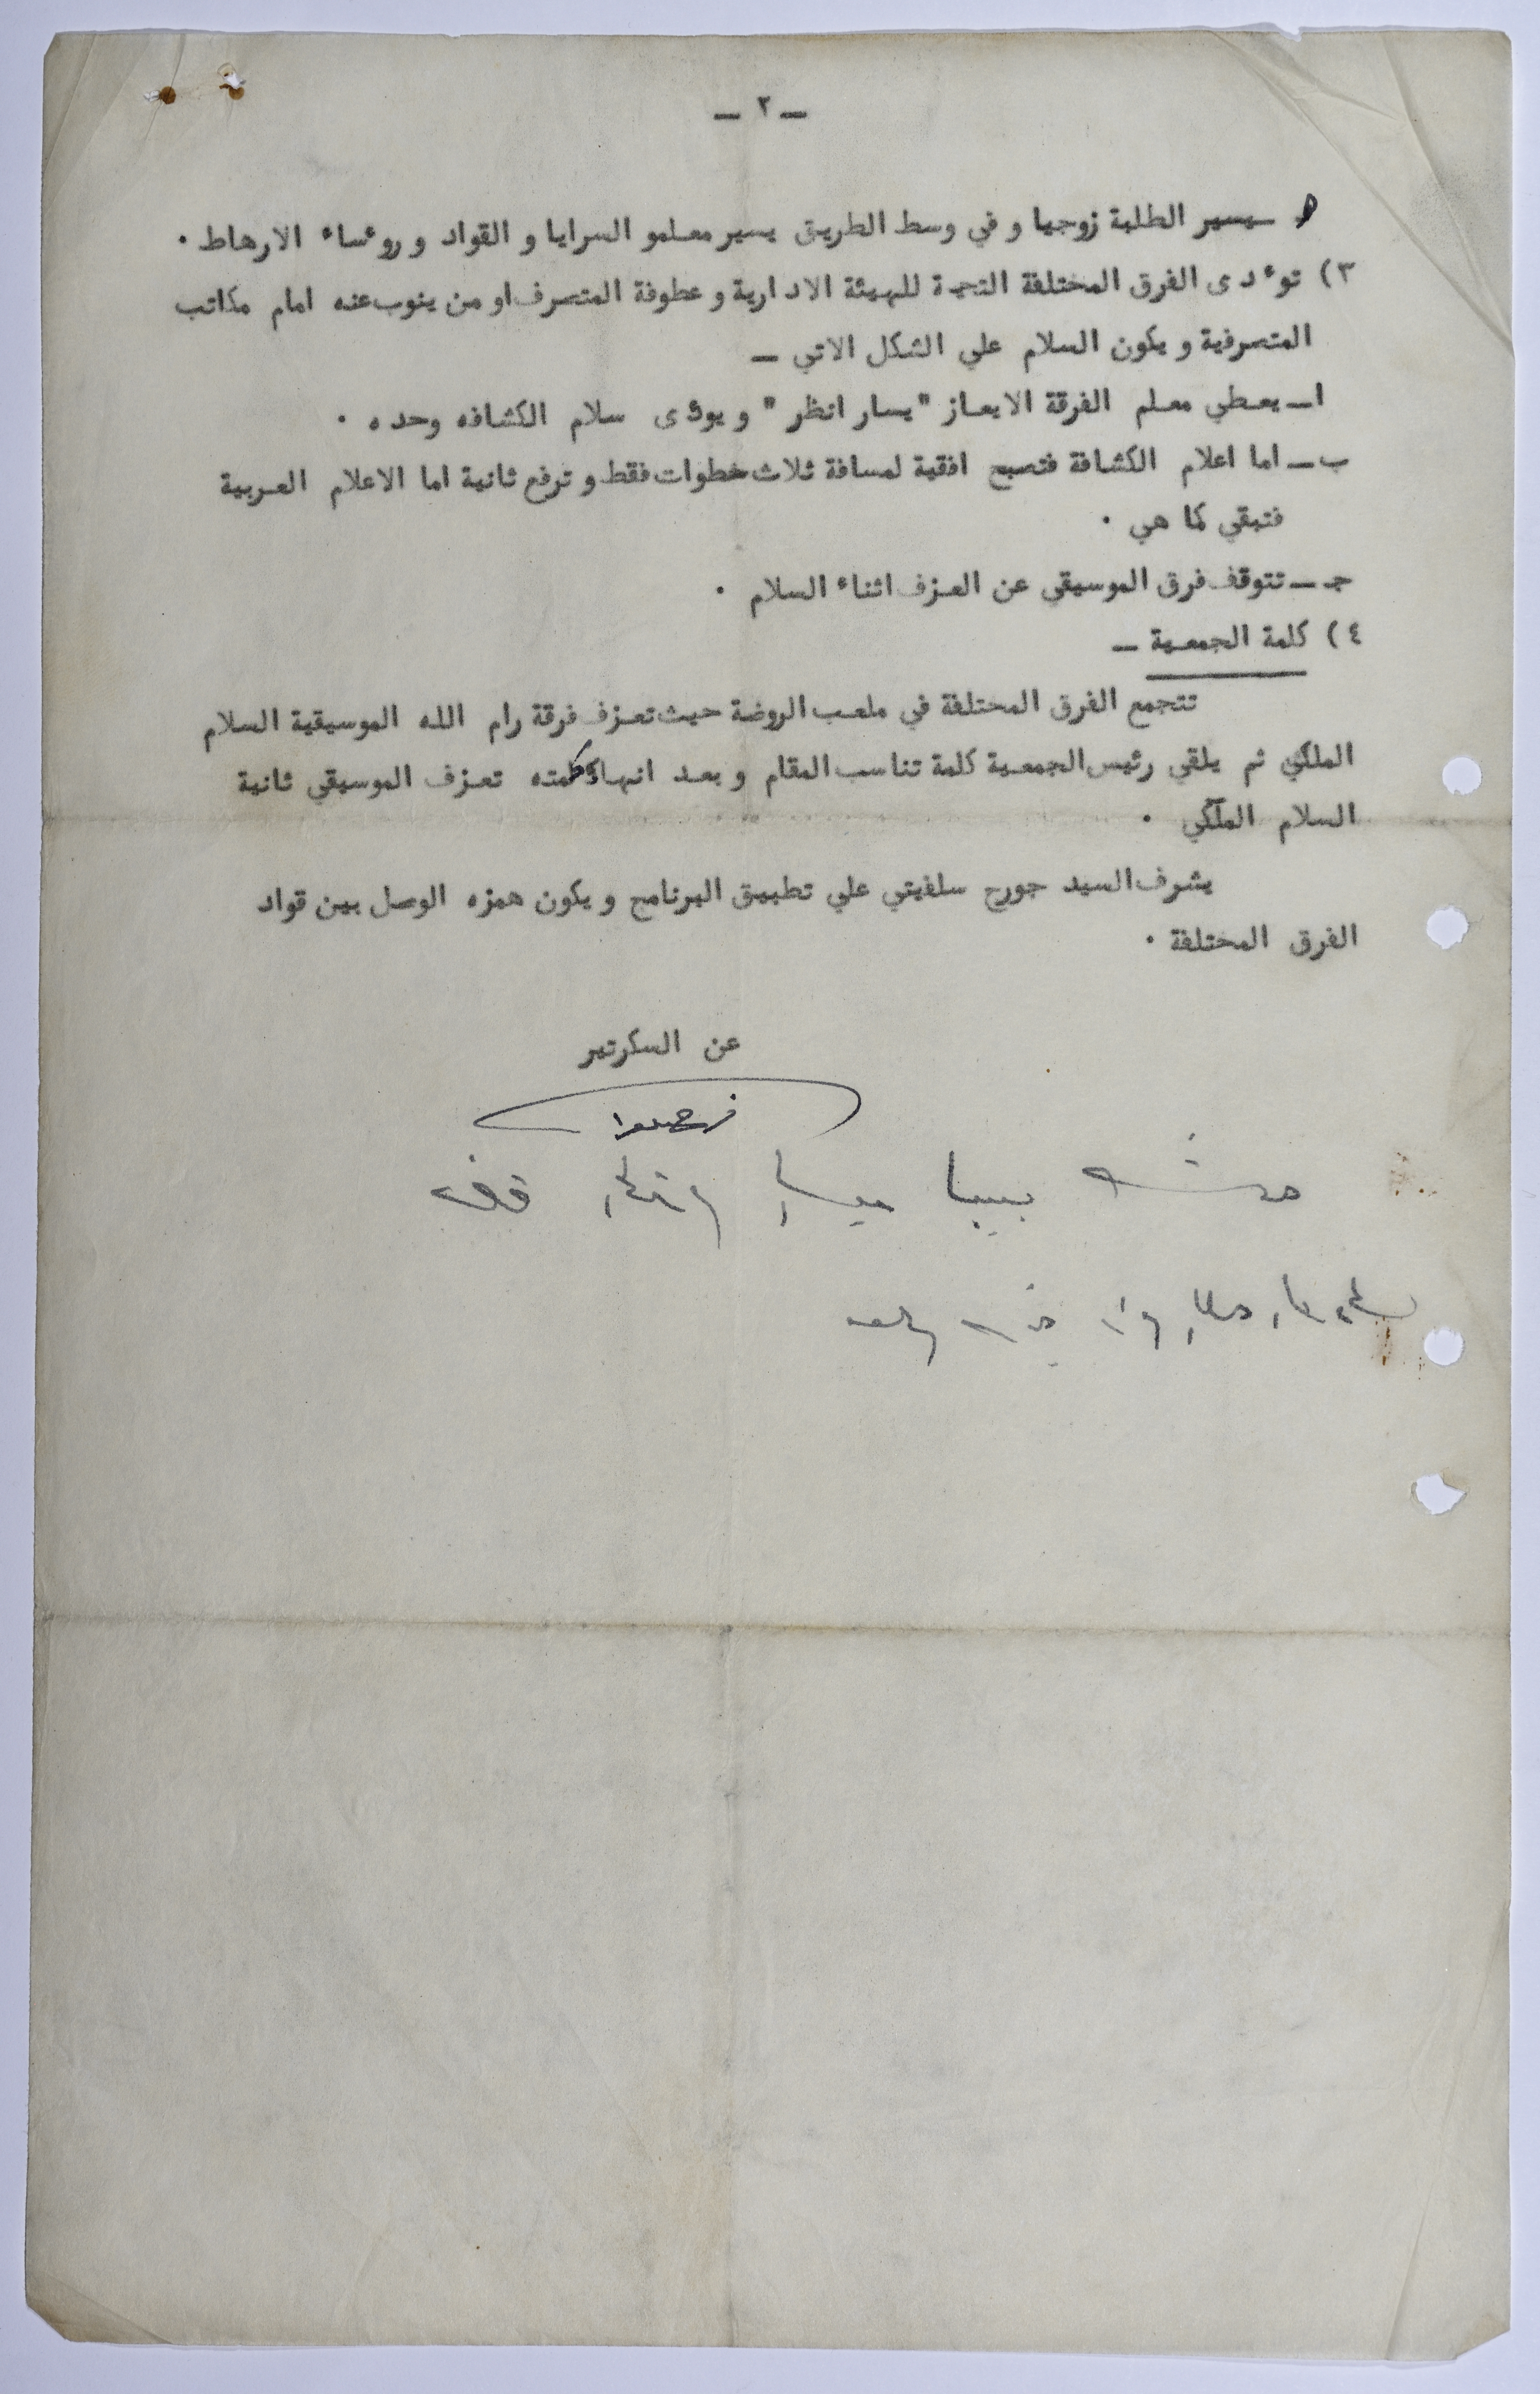 ـ ٢ ـ
هـ ـ يسير الطلبة زوجيا و في وسط الطريق يسير معلمو السرايا و القواد و روءساء الارهاط ٠
٣) توءدى الفرق المختلفة التحية للهيئة الادارية و عطوفة المتصرف او من ينوب عنه امام مكاتب
المتصرفية و يكون السلام علي الشكل الاتي ـ
ا ـ يعطي معلم الفرقة الايعاز "يسار انظر" و يوءدى سلام الكشافه وحده ٠
ب ـ اما اعلام الكشافة فتصبح افقية لمسافة ثلاث خطوات فقط و ترفع ثانية اما الاعلام العربية
فتبقي كما هي ٠
جـ ـ تتوقف فرق الموسيقي عن العزف اثناء السلام ٠
٤) كلمة الجمعية ـ
تتجمع الفرق المختلفة في ملعب الروضة حيث تعزف فرقة رام الله الموسيقية السلام
الملكي ثم يلقي رئيس الجمعية كلمة تناسب المقام و بعد انهاء كلمته تعزف الموسيقي ثانية
السلام الملكي ٠
يشرف السيد جورج سلفيتي علي تطبيق البرنامج و يكون همزه الوصل بين قواد
الفرق المختلفة ٠
عن السكرتير